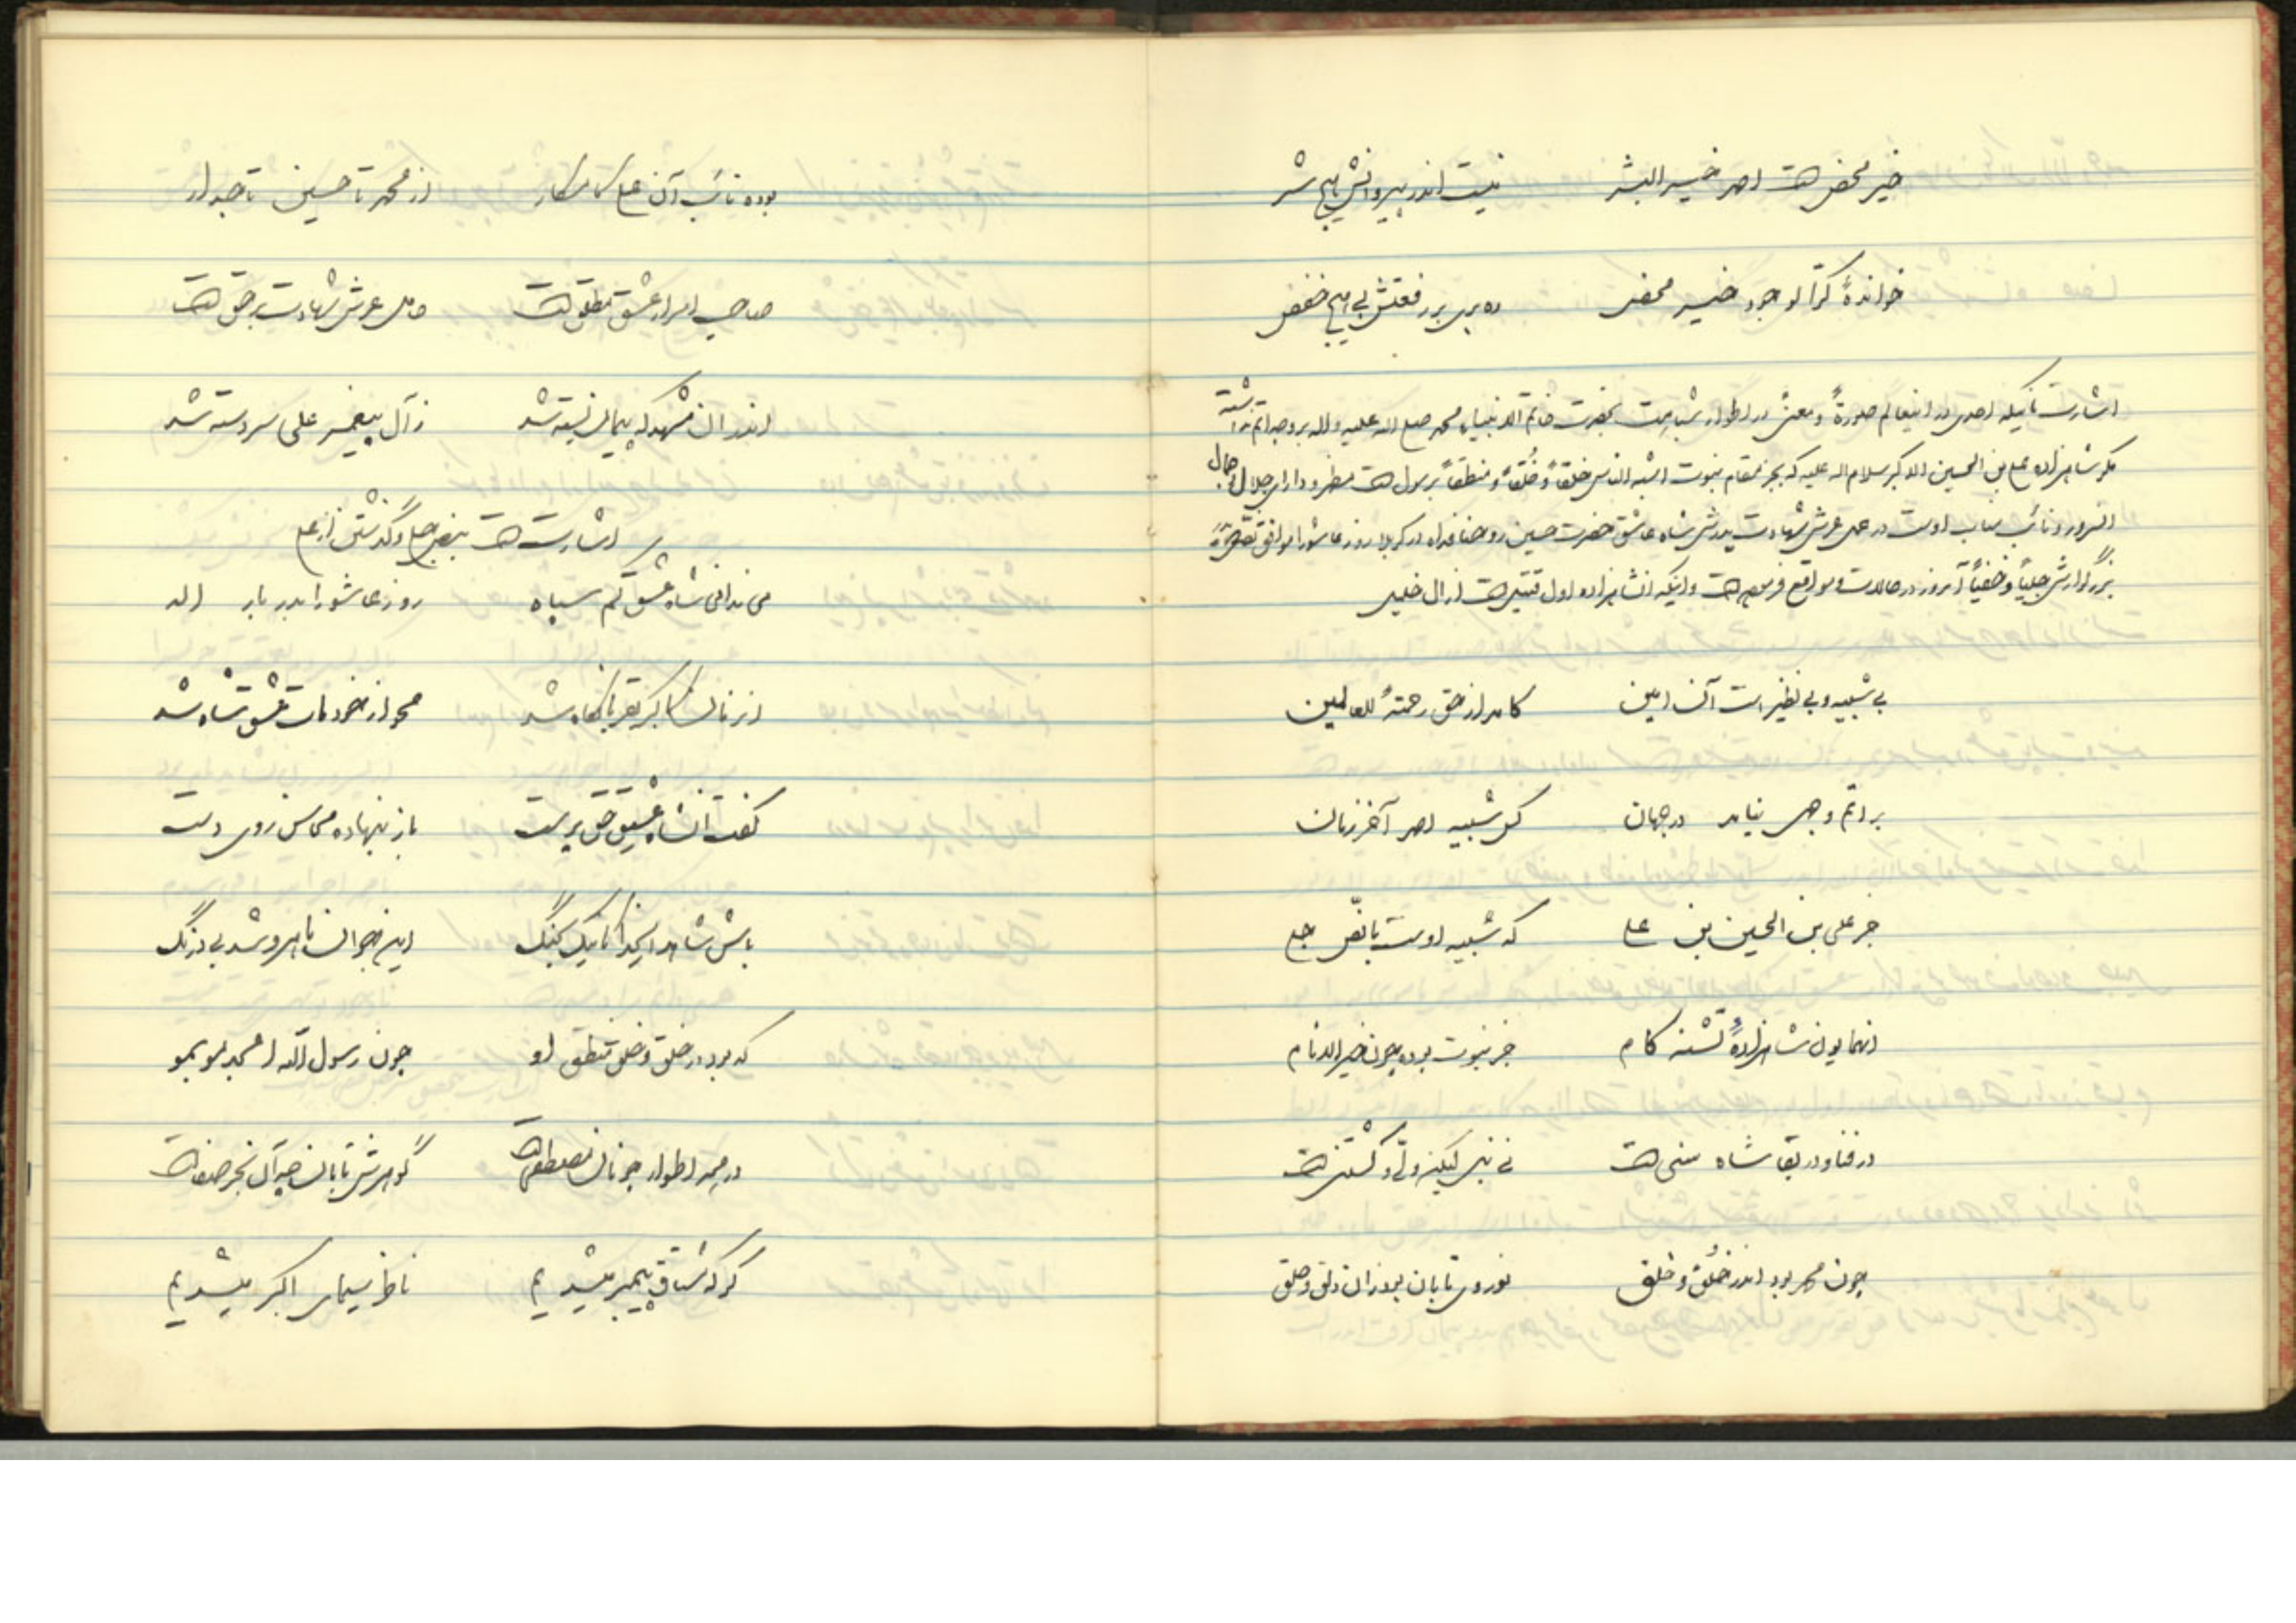 خیر محض است احمد خیر البشر نیست اندر پیروانش هیچ شر
خواندهٔ کز الوجود خیر محض ره بری بر رفعتش بی هیچ خفض
اشارت بآنیکه احدی در اینعالم صورةً و معنیً در اطوار شباهت بحضرت خاتم الانبیاء محمد صلی الله علیه و اله بر وجه اتم نداشته
مگر شاهزاده علی بن الحسین الاکبر سلام اله علیه که بجز مقام نبوت اشبه الناس خلقاً و خُلقاً و منطقاً برسول است مظهر و دارای جلال و جمال
انسرور و نائب مناب اوست در حمل عرش شهادت پدرش شاه عاشق حضرت حسین روحنا فداه در کربلا روز عاشورا موافق نص
بزرگوارش جلیاً و خفیاً آنروز در حالات و مواقع فرموده است و اینکه انشاهزاده اول قتیل است از ال خلیل
بی شبیه و بی نظیر است آن امین کامد از حق رحمةً للعالمین
بر اتم وجهی نیامد در جهان کس شبیه احمد آخر زمان
جز علی بن الحسین بن علی که شبیه اوست با نصّ جلی
انهمایون شاهزادهٔ تشنه کام جز نبوت بوده چون خیر الانام
در فنا و در بقا شاه سنی است نی نبی لیکن ولیّ و
چون محمد بود اندر خُلق و خلق نور وی تابان بود زان دلق و حلق
بوده نائب آن علی کامکار از محمد تا حسین تاجدار
صاحب اسرار عشق مطلق است حامل عرش شهادت بر حق است
اندر ان مشهد که پیمان بسته شد ز آل پیغمبر علی سردسته شد
اشارت است بنص جلی و گذشتن از علی
می ندانی شاه عشق کم سپاه روز عاشورا بدربار اله
از زمان کاکبر بقربانگاه شد محو از خود مات عشق شاه شد
گفت انشاه عشیق حق پرست باز بنهاده محاسن روی دست
باش شاهد ایخدا کاینک بجنگ این جوان ناامرو شد بی درنگ
که بود در خلق و خلق و منطق او چون رسول الله امجد مو بمو
در همه اطوار چونان مصطفی است گوهرش تابان چه آن بحر صفاست
گر که مشتاق پیمبر میشدیم ناظر سیمای اکبر میشدیم